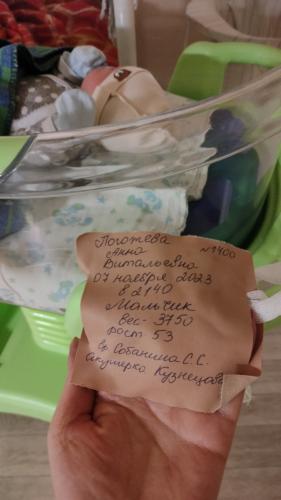 Логотева №1400
Анна
Витальевна
07 ноября 2023
в 21 40
Мальчик
вес- 3750
рост 53
вр Собанина С.С.
Акушерка Кузнецова